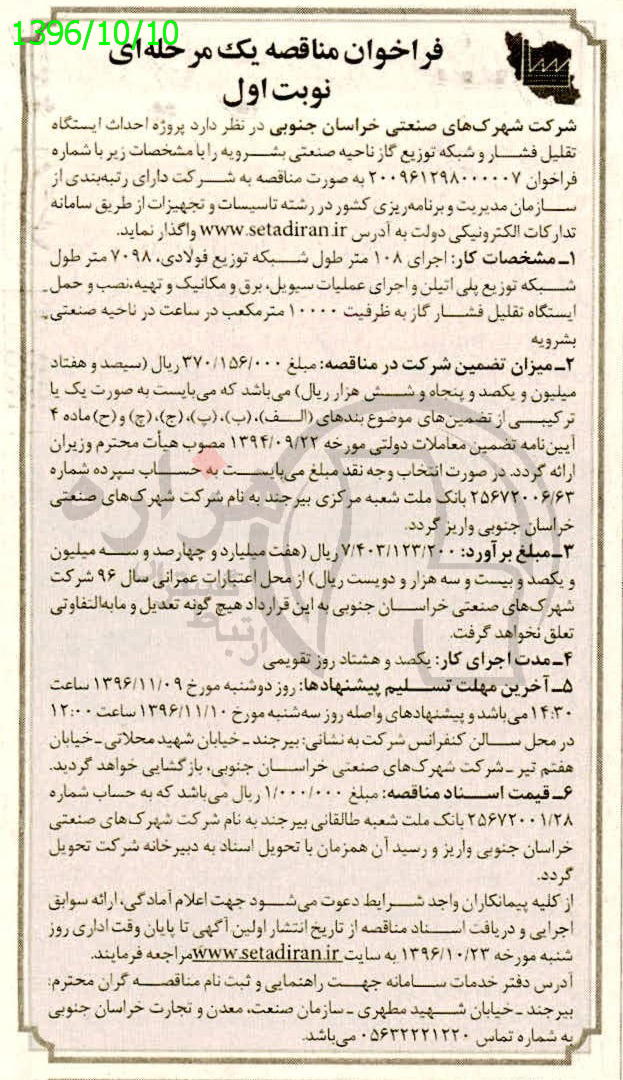 1396/10/10
فراخوان مناقصه یک مرحله‌ای
نوبت اول
شرکت شهرک‌های صنعتی خراسان جنوبی در نظر دارد پروژه احداث ایستگاه
تقلیل فشار و شبکه توزیع گاز ناحیه صنعتی بشرویه را با مشخصات زیر با شماره
فراخوان ۲۰۰۹۶۱۲۹۸۰۰۰۰۰۷ به صورت مناقصه به شرکت دارای رتبه‌بندی از
سازمان مدیریت و برنامه‌ریزی کشور در رشته تاسیسات و تجهیزات از طریق سامانه
تدارکات الکترونیکی دولت به آدرس www.setadiran.ir واگذار نماید.
۱ـ مشخصات کار: اجرای ۱۰۸ متر طول شبکه توزیع فولادی، ۷۰۹۸ متر طول
شبکه توزیع پلی اتیلن و اجرای عملیات سیویل، برق و مکانیک و تهیه، نصب و حمل
ایستگاه تقلیل فشار گاز به ظرفیت ۱۰۰۰۰ مترمکعب در ساعت در ناحیه صنعتی
بشرویه
۲ـ میزان تضمین شرکت در مناقصه: مبلغ ۳۷۰/۱۵۶/۰۰۰ ریال (سیصد و هفتاد
میلیون و یکصد و پنجاه و شش هزار ریال) می‌باشد که می‌بایست به صورت یک یا
ترکیبی از تضمین‌های موضوع بندهای (الف)، (ب)، (پ)، (ج)، (چ) و (ح) ماده ۴
آیین‌نامه تضمین معاملات دولتی مورخه ۱۳۹۴/۰۹/۲۲ مصوب هیأت محترم وزیران
ارائه گردد. در صورت انتخاب وجه نقد مبلغ می‌بایست به حساب سپرده شماره
۲۵۶۷۲۰۰۶/۶۳ بانک ملت شعبه مرکزی بیرجند به نام شرکت شهرک‌های صنعتی
خراسان جنوبی واریز گردد.
۳ـ مبلغ برآورد: ۷/۴۰۳/۱۲۳/۲۰۰ ریال (هفت میلیارد و چهارصد و سه میلیون
و یکصد و بیست و سه هزار و دویست ریال) از محل اعتبارات عمرانی سال ۹۶ شرکت
شهرک‌های صنعتی خراسان جنوبی به این قرارداد هیچ گونه تعدیل و مابه‌التفاوتی
تعلق نخواهد گرفت.
۴ـ مدت اجرای کار: یکصد و هشتاد روز تقویمی
۵ـ آخرین مهلت تسلیم پیشنهادها: روز دوشنبه مورخ ۱۳۹۶/۱۱/۰۹ ساعت
۱۴:۳۰ می‌باشد و پیشنهادهای واصله روز سه‌شنبه مورخ ۱۳۹۶/۱۱/۱۰ ساعت ۱۲:۰۰
در محل سالن کنفرانس شرکت به نشانی: بیرجند ـ خیابان شهید محلاتی ـ خیابان
هفتم تیر ـ شرکت شهرک‌های صنعتی خراسان جنوبی، بازگشایی خواهد گردید.
۶ـ قیمت اسناد مناقصه: مبلغ ۱/۰۰۰/۰۰۰ ریال می‌باشد که به حساب شماره
۲۵۶۷۲۰۰۱/۲۸ بانک ملت شعبه طالقانی بیرجند به نام شرکت شهرک‌های صنعتی
خراسان جنوبی واریز و رسید آن همزمان با تحویل اسناد به دبیرخانه شرکت تحویل
گردد.
از کلیه پیمانکاران واجد شرایط دعوت می‌شود جهت اعلام آمادگی، ارائه سوابق
اجرایی و دریافت اسناد مناقصه از تاریخ انتشار اولین آگهی تا پایان وقت اداری روز
شنبه مورخه ۱۳۹۶/۱۰/۲۳ به سایت www.setadiran.ir مراجعه فرمایند.
آدرس دفتر خدمات سامانه جهت راهنمایی و ثبت نام مناقصه گران محترم:
بیرجند ـ خیابان شهید مطهری ـ سازمان صنعت، معدن و تجارت خراسان جنوبی
به شماره تماس ۰۵۶۳۲۲۲۱۲۲۰ می‌باشد.